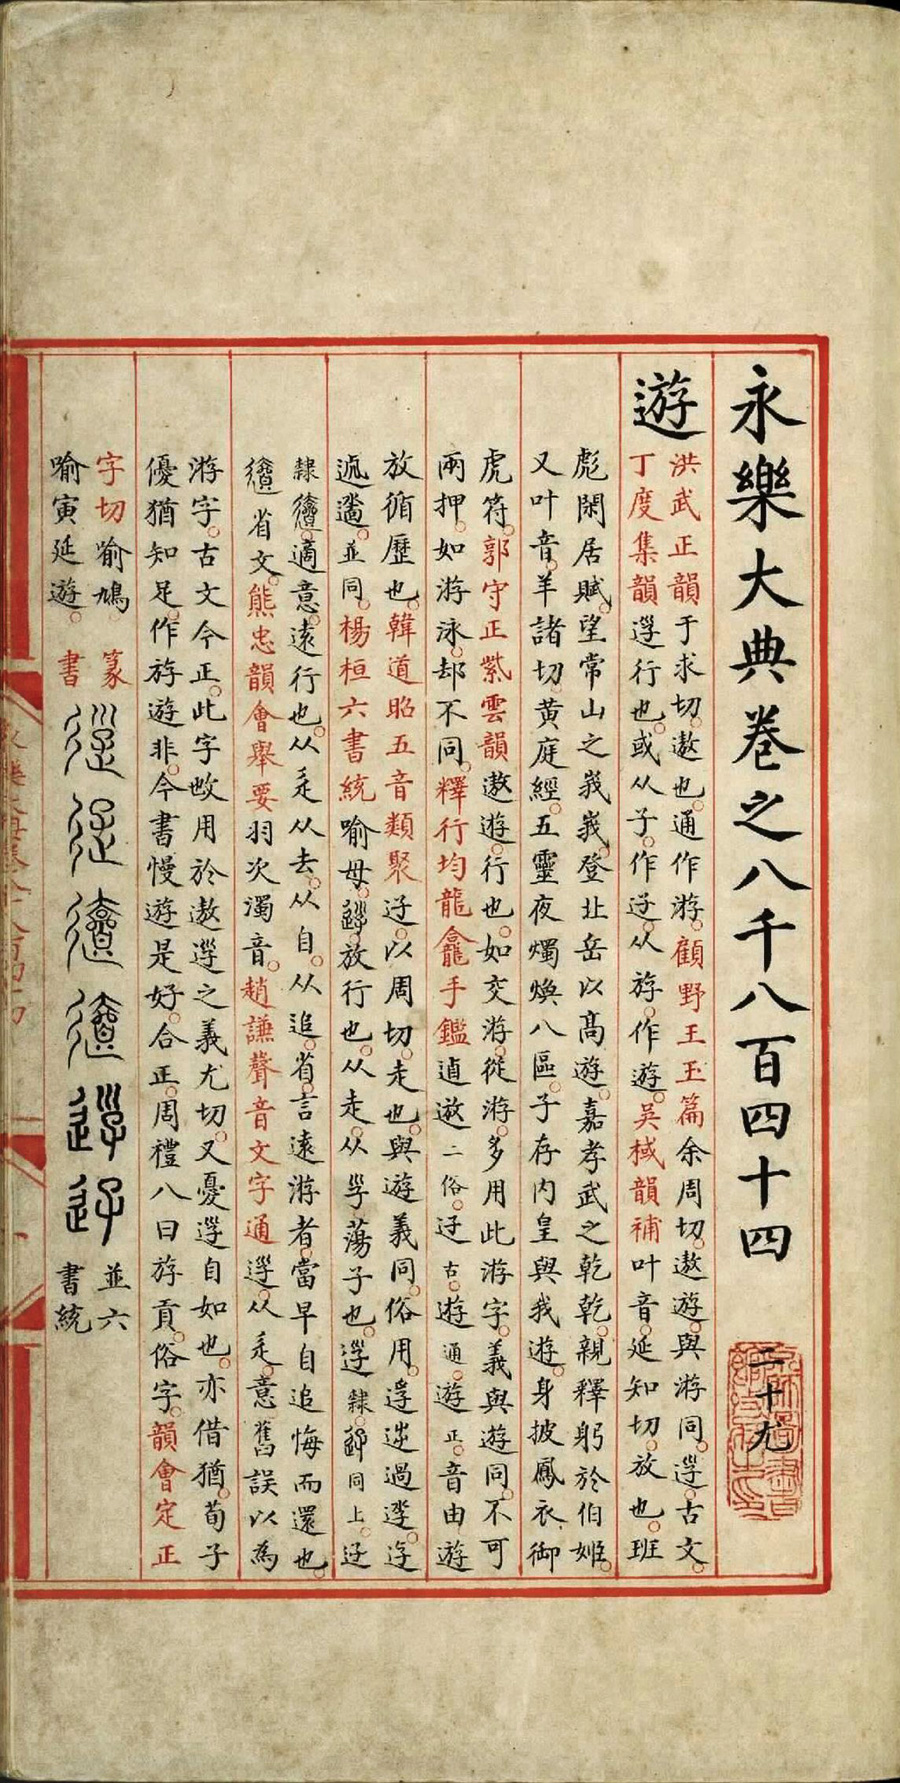 永樂大典卷之八千八百四十四 二十九
遊
洪武正韻于求切遨也通作游顧野王玉篇余周切遨遊與游同逕古文
丁度集韻遊行也或从子作迃从斿作遊吳棫韻補叶音延知切放也班
彪閑居賦望常山之峩峩登北岳以高遊嘉孝武之乾乾親釋躬於伯姬
又叶音羊諸切黃庭經五靈夜燭煥八區子存內皇與我遊身披鳳衣御
虎符郭守正紫雲韻遨遊行也如交游從游多用此游字義與遊同不可
兩押如游泳却不同釋行均龍龕手鑑逌遨二俗迃古遊通遊正音由遊
放循歷也韓道昭五音類聚迃以周切走也與遊義同俗用
並同楊桓六書統喻母放行也从走从孚蕩子也隸同上
隸適意遠行也从辵从去从自从追省言遠游者當早自追悔而還也
省文熊忠韻會舉要羽次濁音趙謙聲音文字通从辵意舊誤以為
游字古文今正此字故用於遨遊之義尤切又憂遊自如也亦借猶荀子
優猶知足作斿遊非今書慢遊是好合正周禮八曰斿貢俗字韻會定正
字切喻鳩 篆 並六
喻寅延遊 書 書統